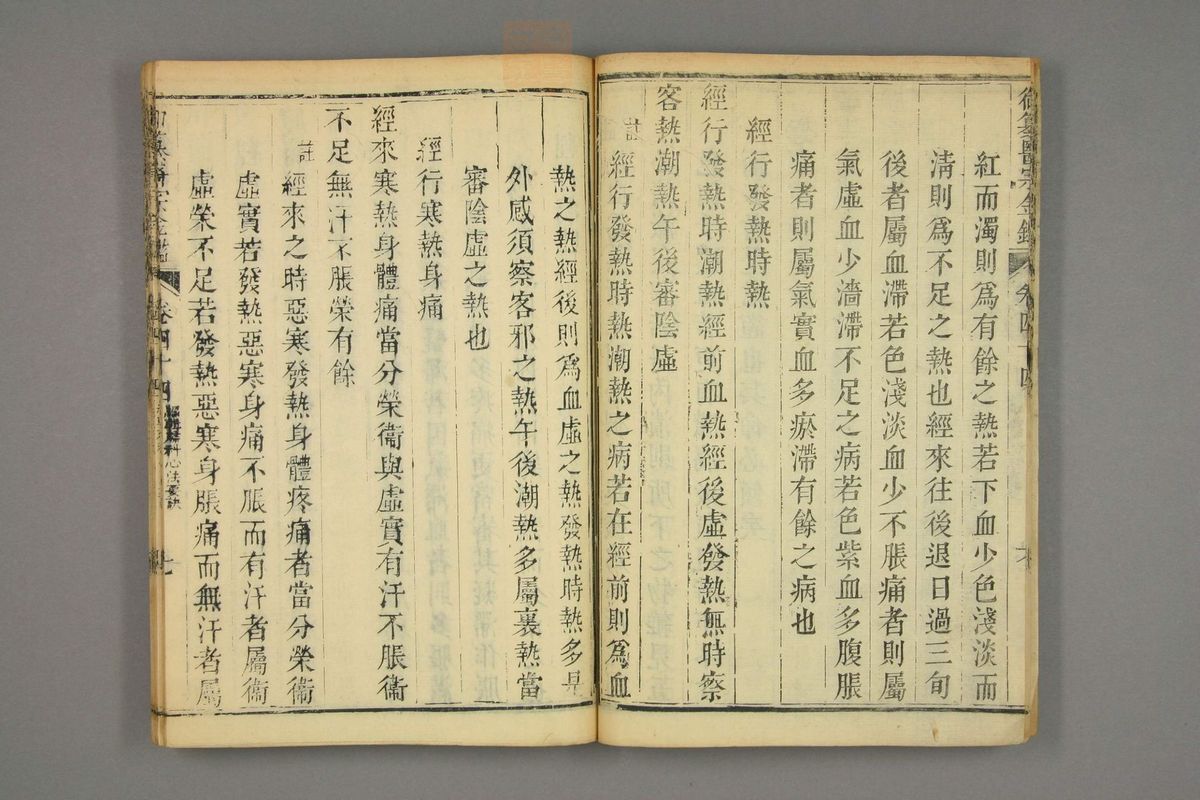 御纂醫宗金鑑 卷四十四
紅而濁則爲有餘之熱若下血少色淺淡而
淸則爲不足之熱也經來往後退日過三旬
後者屬血滯若色淺淡血少不脹痛者則屬
氣虛血少濇滯不足之病若色紫血多腹脹
痛者則屬氣實血多瘀滯有餘之病也
經行發熱時熱
經行發熱時潮熱經前血熱經後虛發熱無時察
客熱潮熱午後審陰虛
註
經行發熱時熱潮熱之病若在經前則爲血
熱之熱經後則爲血虛之熱發熱時熱多是
外感須察客邪之熱午後潮熱多屬裏熱當
審陰虛之熱也
經行寒熱身痛
經來寒熱身體痛當分榮衞與虛實有汗不脹衞
不足無汗不脹榮有餘
註
經來之時惡寒發熱身體疼痛者當分榮衞
虛實若發熱惡寒身痛不脹而有汗者屬衞
虛榮不足若發熱惡寒身脹痛而無汗者屬
卷四十四
科心法要訣